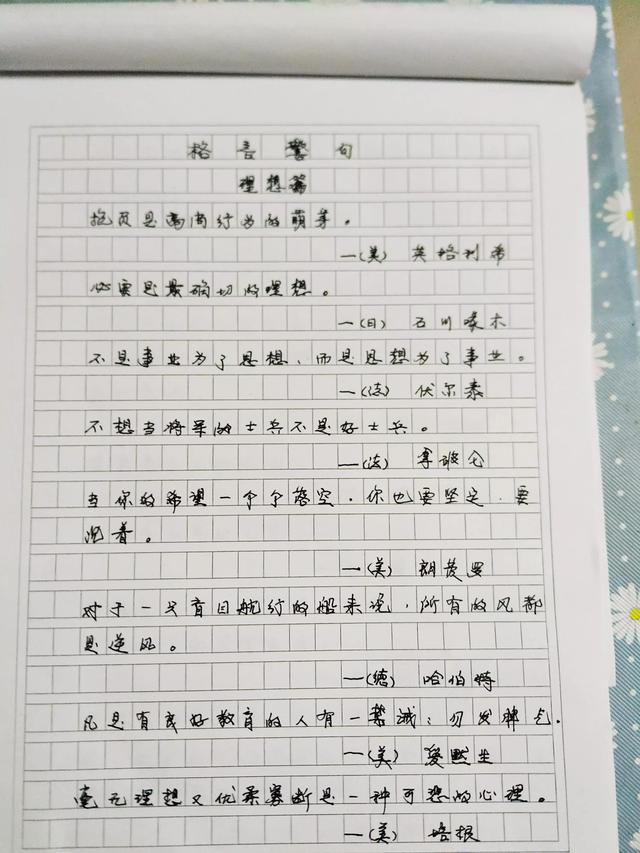 格言警句
理想篇
抱负是高尚行为的萌芽。
—(美) 英格利希
必要是最确切的理想。
—(日) 石川啄木
不是事业为了思想,而是思想为了事业。
—(法) 伏尔泰
不想当将军的士兵不是好士兵。
—(法) 拿破仑
当你的希望一个个落空,你也要坚定,要
沉着。
—(美) 朗费罗
对于一只盲目航行的船来说,所有的风都
是逆风。
—(德) 哈伯特
凡是有良好教育的人有一禁诫:勿发脾气.
—(美) 爱默生
毫无理想又优柔寡断是一种可悲的心理。
—(美) 培根